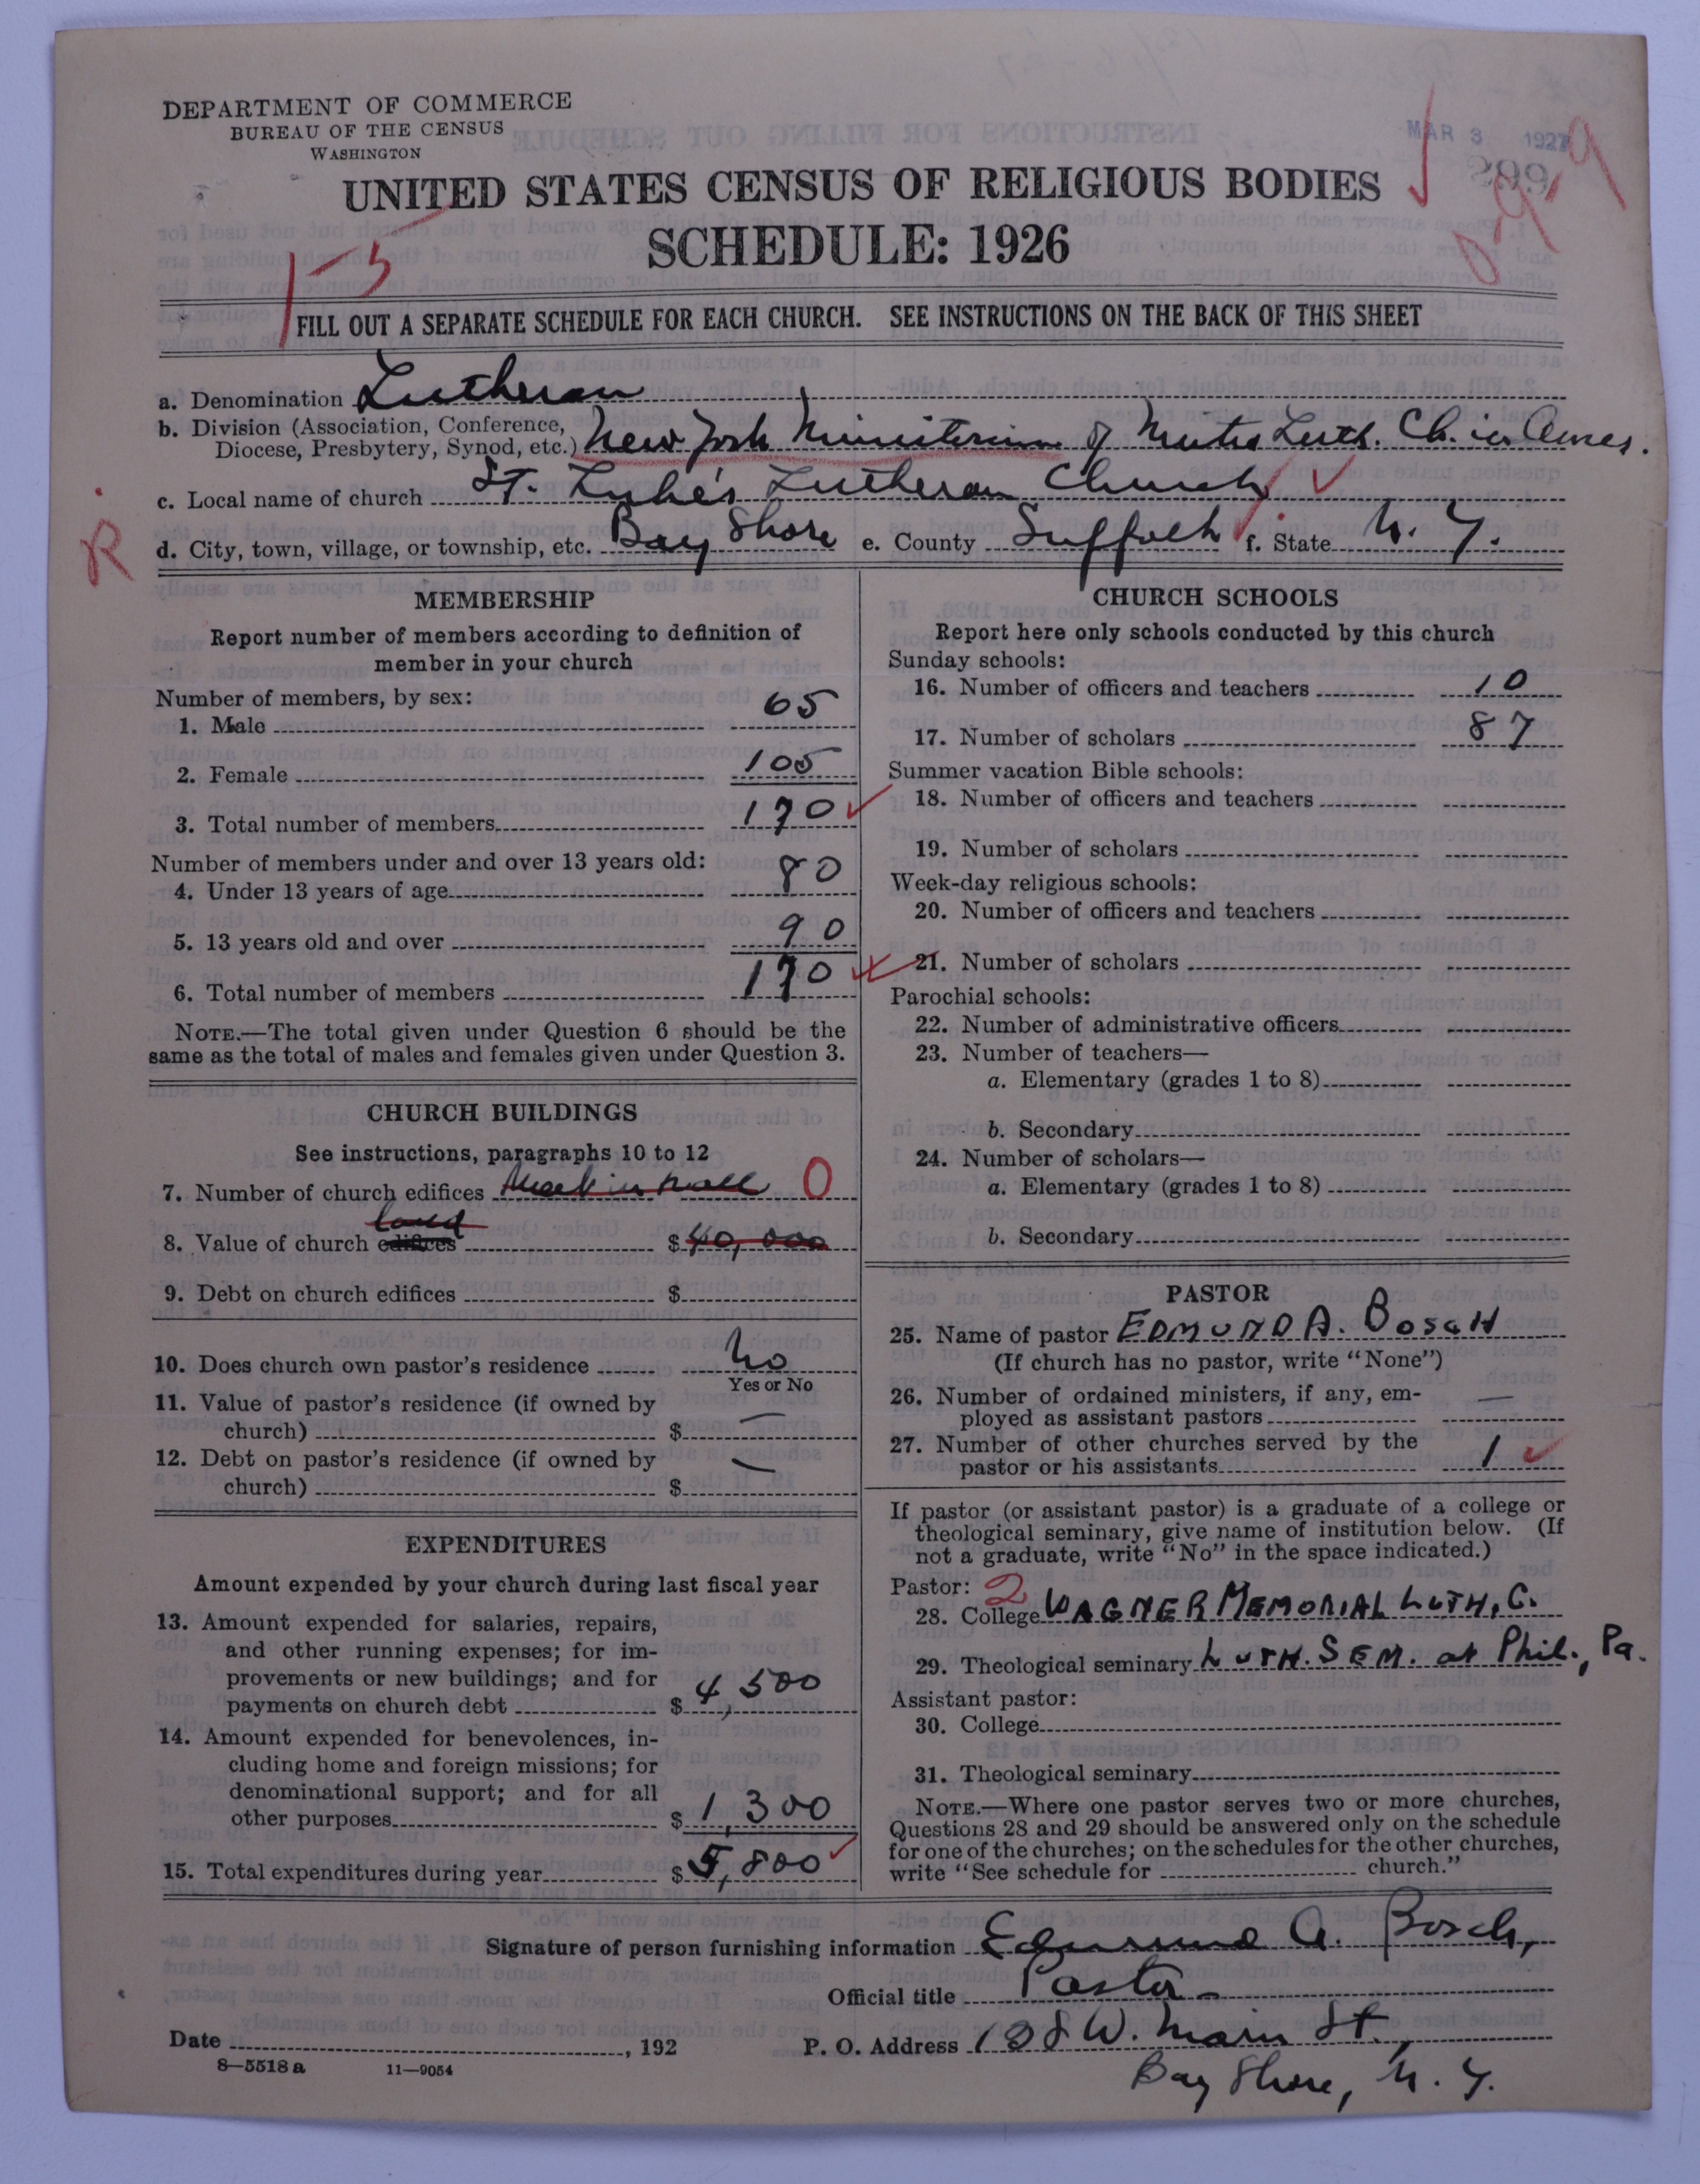 DEPARTMENT OF COMMERCE
BUREAU OF THE CENSUS
WASHINGTON
MAR 3 1927
UNITED STATES CENSUS OF RELIGIOUS BODIES
SCHEDULE: 1926
1-5
FILL OUT A SEPARATE SCHEDULE FOR EACH CHURCH. SEE INSTRUCTIONS ON THE BACK OF THIS SHEET
a. Denomination Lutheran
b. Division (Association, Conference,
Diocese, Presbytery, Synod, etc.) New York Ministerium of Luth. Ch. in Amer.
c. Local name of church St. Luke's Lutheran Church
R
d. City, town, village, or township, etc. Bay Shore e. County Suffolk f. State N. Y.
MEMBERSHIP
Report number of members according to definition of
member in your church
Number of members, by sex:
1. Male 65
2. Female 105
3. Total number of members 170
Number of members under and over 13 years old:
4. Under 13 years of age 80
5. 13 years old and over 90
6. Total number of members 170
NOTE.—The total given under Question 6 should be the
same as the total of males and females given under Question 3.
CHURCH BUILDINGS
See instructions, paragraphs 10 to 12
7. Number of church edifices 0
land
8. Value of church edifices $ 40,000
9. Debt on church edifices $
10. Does church own pastor's residence No
Yes or No
11. Value of pastor's residence (if owned by
church) $ —
12. Debt on pastor's residence (if owned by
church) $ —
EXPENDITURES
Amount expended by your church during last fiscal year
13. Amount expended for salaries, repairs,
and other running expenses; for im-
provements or new buildings; and for
payments on church debt $ 4,500
14. Amount expended for benevolences, in-
cluding home and foreign missions; for
denominational support; and for all
other purposes $ 1,300
15. Total expenditures during year $ 5,800
CHURCH SCHOOLS
Report here only schools conducted by this church
Sunday schools:
16. Number of officers and teachers 10
17. Number of scholars 87
Summer vacation Bible schools:
18. Number of officers and teachers
19. Number of scholars
Week-day religious schools:
20. Number of officers and teachers
21. Number of scholars
Parochial schools:
22. Number of administrative officers
23. Number of teachers—
a. Elementary (grades 1 to 8)
b. Secondary
24. Number of scholars—
a. Elementary (grades 1 to 8)
b. Secondary
PASTOR
25. Name of pastor EDMUND A. BOSCH
(If church has no pastor, write "None")
26. Number of ordained ministers, if any, em-
ployed as assistant pastors —
27. Number of other churches served by the
pastor or his assistants 1
If pastor (or assistant pastor) is a graduate of a college or
theological seminary, give name of institution below. (If
not a graduate, write "No" in the space indicated.)
Pastor: 2
28. College WAGNER MEMORIAL LUTH. C.
29. Theological seminary LUTH. SEM. at Phil., Pa.
Assistant pastor:
30. College
31. Theological seminary
NOTE.—Where one pastor serves two or more churches,
Questions 28 and 29 should be answered only on the schedule
for one of the churches; on the schedules for the other churches,
write "See schedule for church."
Signature of person furnishing information Edmund A. Bosch,
Official title Pastor
Date , 192
P. O. Address 108 W. Main St.,
Bay Shore, N. Y.
8—5518 a 11—9054